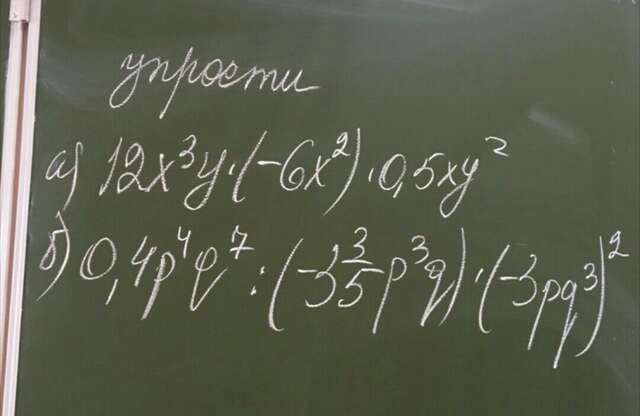 упрости
а) 12x³y·(-6x²)·0,5xy²
б) 0,4p⁴q⁷:(-3 3/5 p³q)·(-3pq³)²